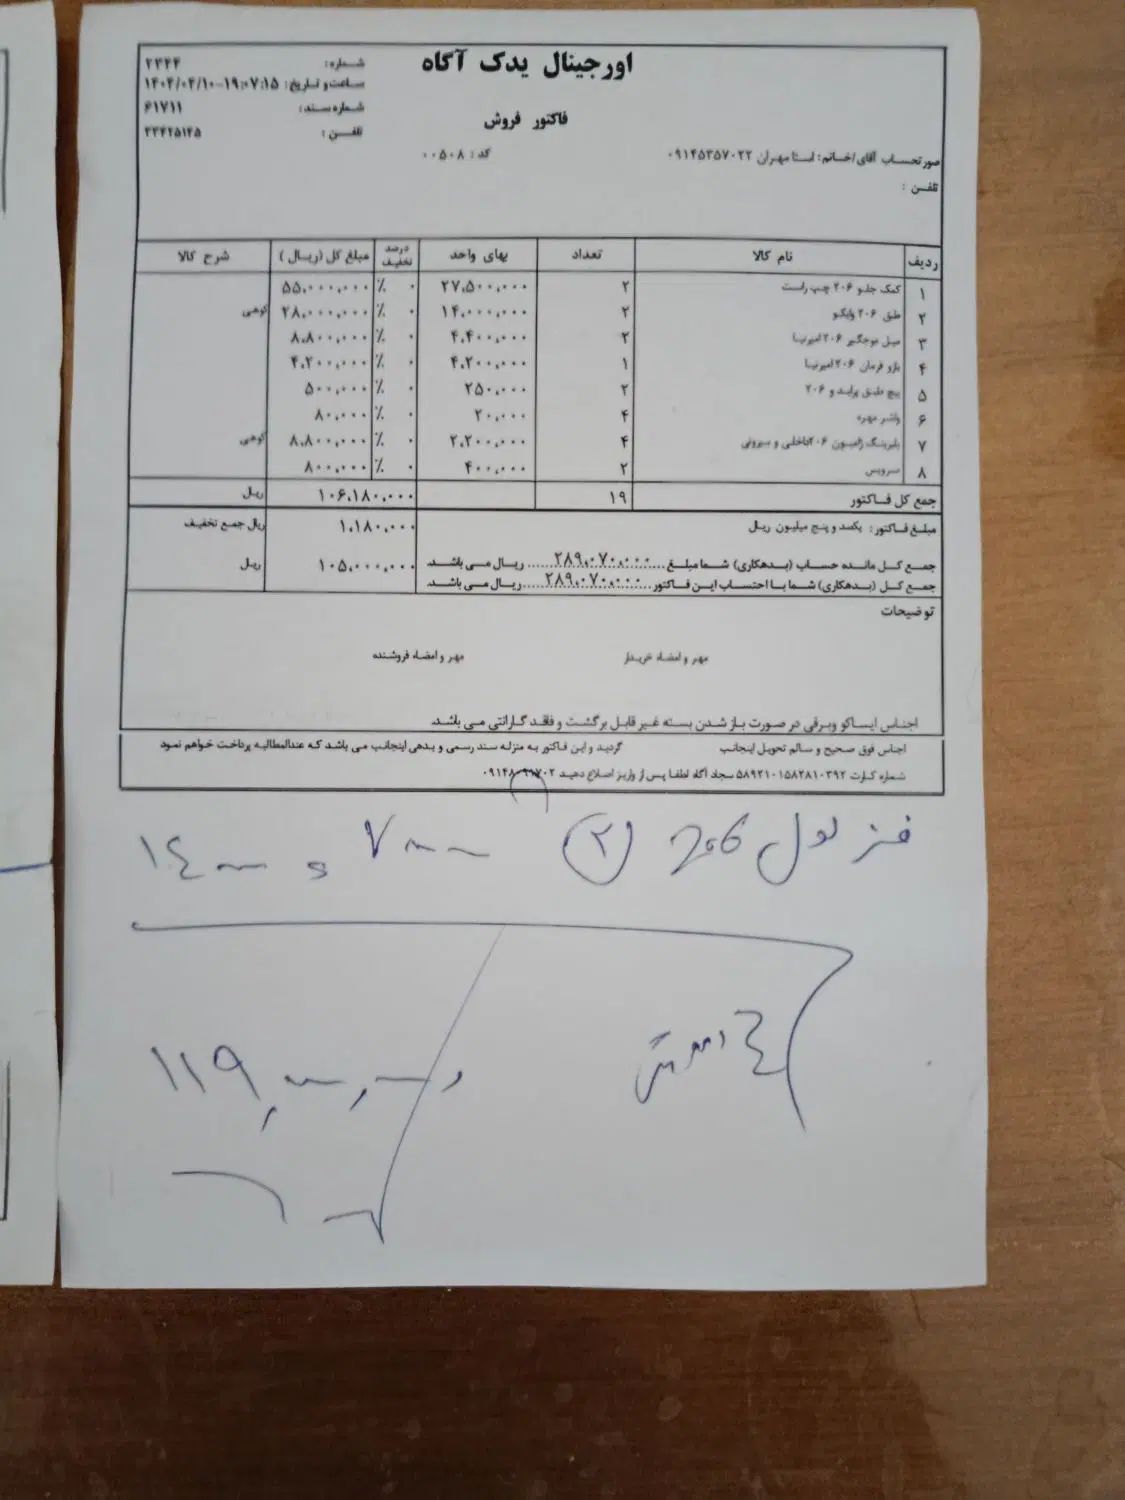 اورجینال یدک آگاه
شماره: ۲۳۴۴
ساعت و تاریخ: ۱۹:۰۷:۱۵-۱۴۰۴/۰۴/۱۰
فاکتور فروش
شماره سند: ۶۱۷۱۱
تلفن: ۳۳۴۲۵۱۴۵
صورتحساب آقای/خانم: استا مهران ۰۹۱۴۵۳۵۷۰۲۲ کد: ۰۰۵۰۸
تلفن:
ردیف نام کالا تعداد بهای واحد درصد تخفیف مبلغ کل (ریال) شرح کالا
۱ کمک جلو ۲۰۶ چپ راست ۲ ۲۷,۵۰۰,۰۰۰ ۰ ٪ ۵۵,۰۰۰,۰۰۰
۲ طبق ۲۰۶ وایکو ۲ ۱۴,۰۰۰,۰۰۰ ۰ ٪ ۲۸,۰۰۰,۰۰۰ کوهی
۳ میل موجگیر ۲۰۶ امیرنیا ۲ ۴,۴۰۰,۰۰۰ ۰ ٪ ۸,۸۰۰,۰۰۰
۴ بازو فرمان ۲۰۶ امیرنیا ۱ ۴,۲۰۰,۰۰۰ ۰ ٪ ۴,۲۰۰,۰۰۰
۵ پیچ طبق پراید و ۲۰۶ ۲ ۲۵۰,۰۰۰ ۰ ٪ ۵۰۰,۰۰۰
۶ واشر مهره ۴ ۲۰,۰۰۰ ۰ ٪ ۸۰,۰۰۰
۷ بلبرینگ ژامبون ۲۰۶ داخلی و بیرونی ۴ ۲,۲۰۰,۰۰۰ ۰ ٪ ۸,۸۰۰,۰۰۰ کوهی
۸ سرویس ۲ ۴۰۰,۰۰۰ ۰ ٪ ۸۰۰,۰۰۰
جمع کل فاکتور ۱۹ ۱۰۶,۱۸۰,۰۰۰ ریال
مبلغ فاکتور: یکصد و پنج میلیون ریال ۱,۱۸۰,۰۰۰ ریال جمع تخفیف
جمع کل مانده حساب (بدهکاری) شما مبلغ ....۲۸۹,۰۷۰,۰۰۰.... ریال می باشد. ۱۰۵,۰۰۰,۰۰۰ ریال
جمع کل (بدهکاری) شما با احتساب این فاکتور ....۲۸۹,۰۷۰,۰۰۰.... ریال می باشد.
توضیحات
مهر و امضاء خریدار مهر و امضاء فروشنده
اجناس ایساکو وبرقی در صورت باز شدن بسته غیر قابل برگشت و فاقد گارانتی می باشد.
اجناس فوق صحیح و سالم تحویل اینجانب گردید و این فاکتور به منزله سند رسمی و بدهی اینجانب می باشد که عندالمطالبه پرداخت خواهم نمود
شماره کارت ۵۸۹۲۱۰۱۵۸۲۸۱۰۳۹۲ سجاد آگاه لطفا پس از واریز اصلاع دهید
فنر لول 206 ۲ ۷۰۰۰
۱۱۹